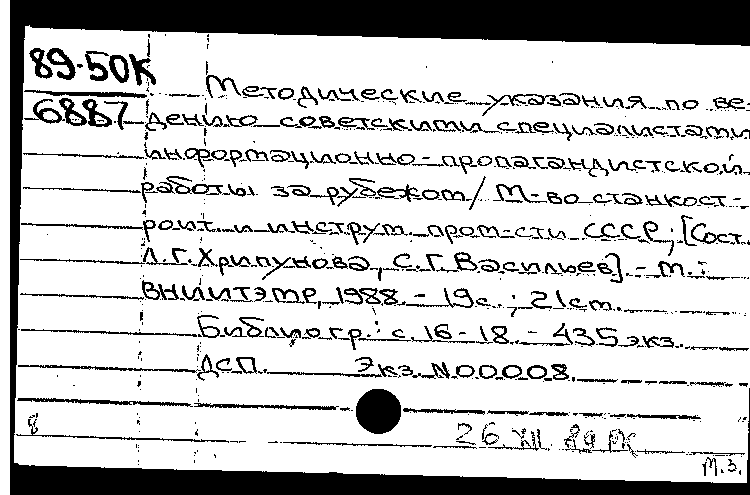 89-50К
6887
Методические указания по ве-
дению советскими специалистами
информационно-пропагандистской
работы за рубежом / М-во станкост-
роит. и инструм. пром-сти СССР; [Сост.
Л.Г. Хрипунова, С.Г. Васильев]. - М.:
ВНИИТЭМР, 1988. - 19с.; 21см.
Библиогр.: с. 16-18. - 435 экз.
ДСП. Экз. N00008.
8
26.XII.89
М.З.